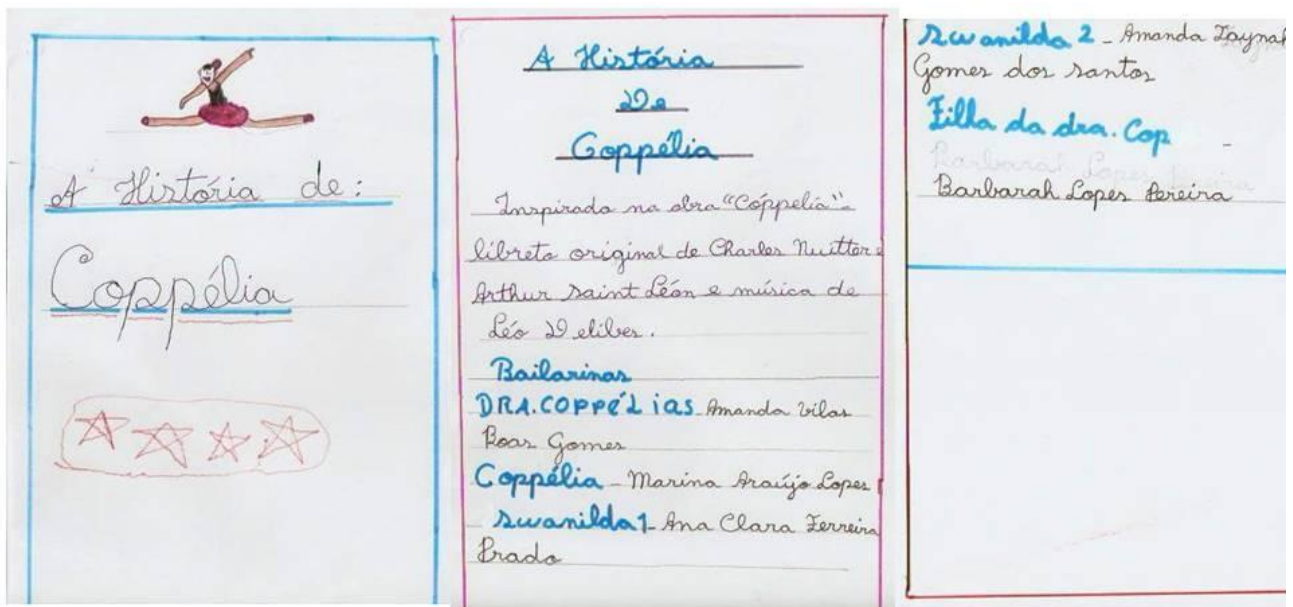 A História de:
Coppélia
A História
De
Coppélia
Inspirado na obra "Cóppelia"-
libreto original de Charles Nuitter e
Arthur Saint Léon e música de
Léo Delibes.
Bailarinas
DRA. COPPÉLIAS - Amanda Vilas
Boas Gomes
Coppélia - Marina Araújo Lopes
Swanilda 1 - Ana Clara Ferreira
Prado
Swanilda 2 - Amanda Taynah
Gomes dos Santos
Filha da dra. Cop -
Barbarah Lopes Pereira
Barbarah Lopes Pereira